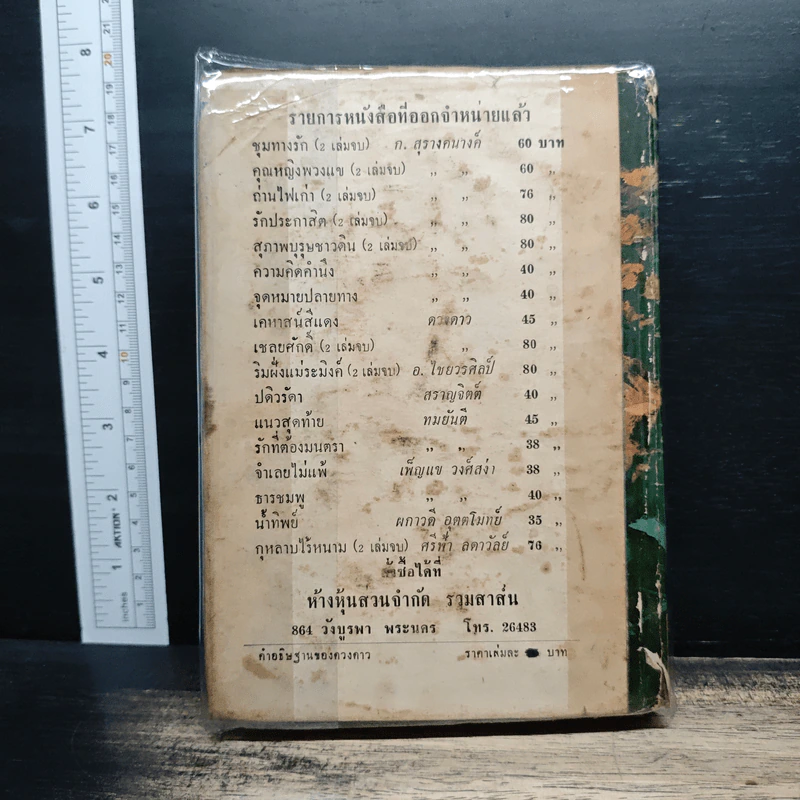 รายการหนังสือที่ออกจำหน่ายแล้ว
ชุมทางรัก (2 เล่มจบ) ก. สุรางคนางค์ 60 บาท
คุณหญิงพวงแข (2 เล่มจบ) ,, ,, 60 ,,
ถ่านไฟเก่า (2 เล่มจบ) ,, ,, 76 ,,
รักประกาสิต (2 เล่มจบ) ,, ,, 80 ,,
สุภาพบุรุษชาวดิน (2 เล่มจบ) ,, ,, 80 ,,
ความคิดคำนึง ,, ,, 40 ,,
จุดหมายปลายทาง ,, ,, 40 ,,
เคหาสน์สีแดง ดวงดาว 45 ,,
เชลยศักดิ์ (2 เล่มจบ) ,, 80 ,,
ริมฝั่งแม่ระมิงค์ (2 เล่มจบ) อ. ไชยวรศิลป์ 80 ,,
ปดิวรัดา สราญจิตต์ 40 ,,
แนวสุดท้าย ทมยันตี 45 ,,
รักที่ต้องมนตรา ,, ,, 38 ,,
จำเลยไม่แพ้ เพ็ญแข วงศ์สง่า 38 ,,
ธารชมพู ,, ,, 40 ,,
น้ำทิพย์ ผกาวดี อุตตโมทย์ 35 ,,
กุหลาบไร้หนาม (2 เล่มจบ) ศรีฟ้า ลดาวัลย์ 76 ,,
สั่งซื้อได้ที่
ห้างหุ้นส่วนจำกัด รวมสาส์น
864 วังบูรพา พระนคร โทร. 26483
คำอธิษฐานของดวงดาว ราคาเล่มละ บาท
8
7
6
5
4
3
2
1
inches
AKTION
21
20
19
18
17
16
15
14
13
12
11
10
9
8
7
6
5
4
3
2
1